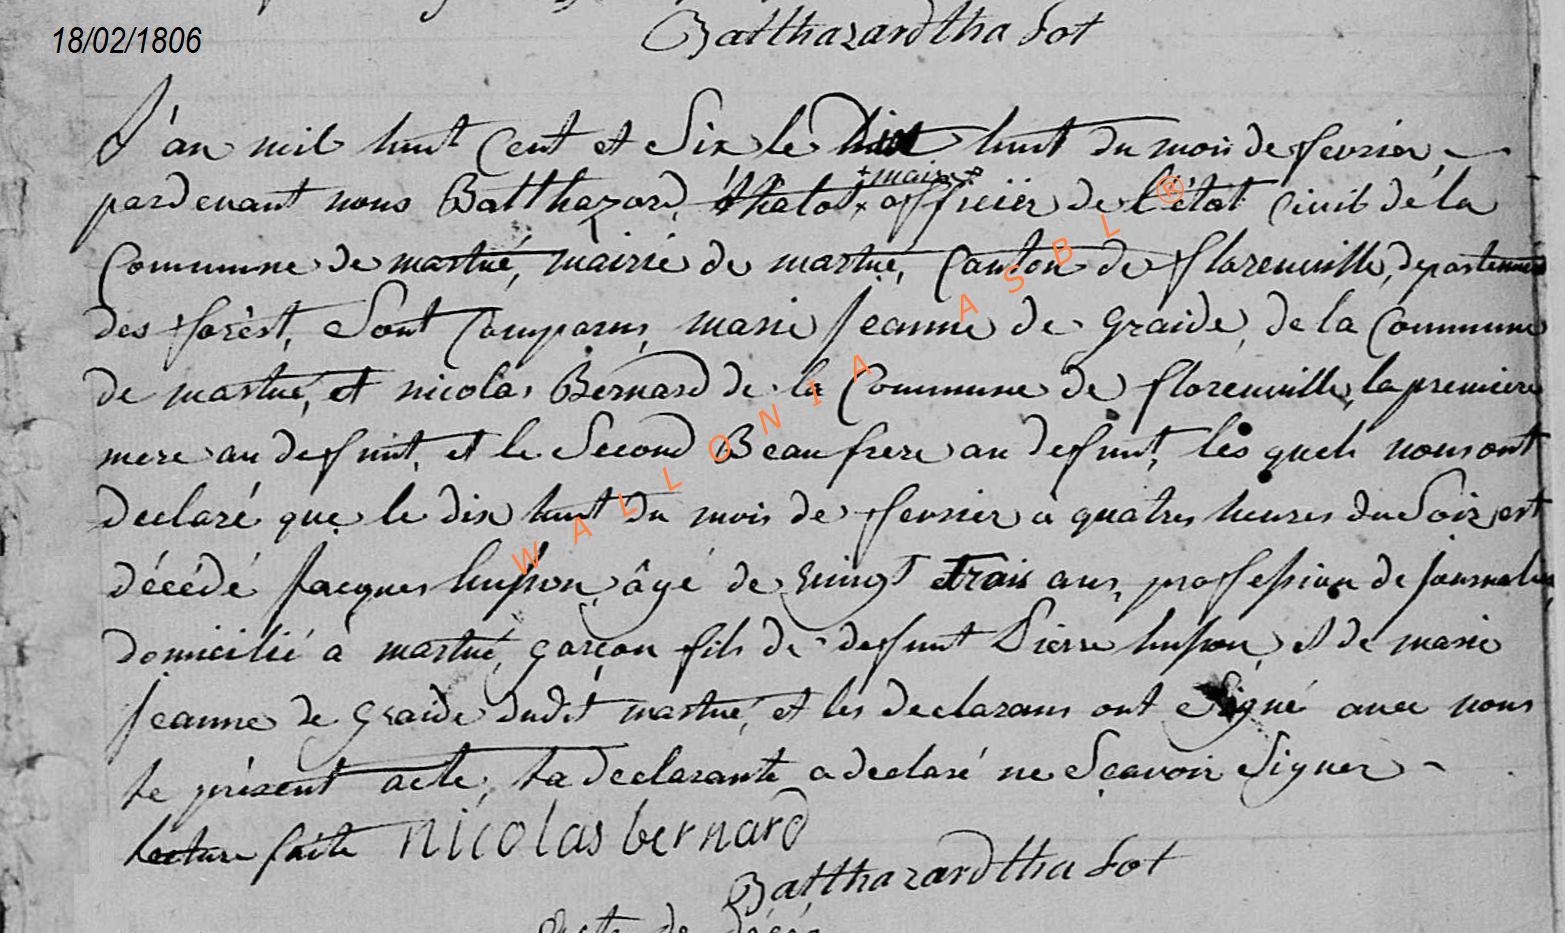 18/02/1806
Batthazardthalot
L'an mil huit Cent et Six le Dix huit du mois de fevrier
pardevant nous Batthazard thalot + maire + officier de l'état Civil de la
Commune de martué, mairie de martué, Canton de florenville, departement
des forèst, Sont Comparus, marie jeanne de graide, de la Commune
de martué, et nicolas Bernard de la Commune de florenville, la premiere
mere au defunt, et le Second Beaufrere au defunt, lesquels nous ont
declaré que le dix huit du mois de fevrier a quatres heures du Soir est
décédé jacques husson âgé de vingt trois ans, profession de journalier
domicilié a martué, garçon fils de defunt Pierre husson, et de marie
jeanne de graide dudit martué, et les declarans ont Signé avec nous
le présent acte, la declarante a declaré ne Scavoir Signer
lecture faite nicolas bernard
Batthazardthalot
Acte de décé
WALLONIA ASBL ®